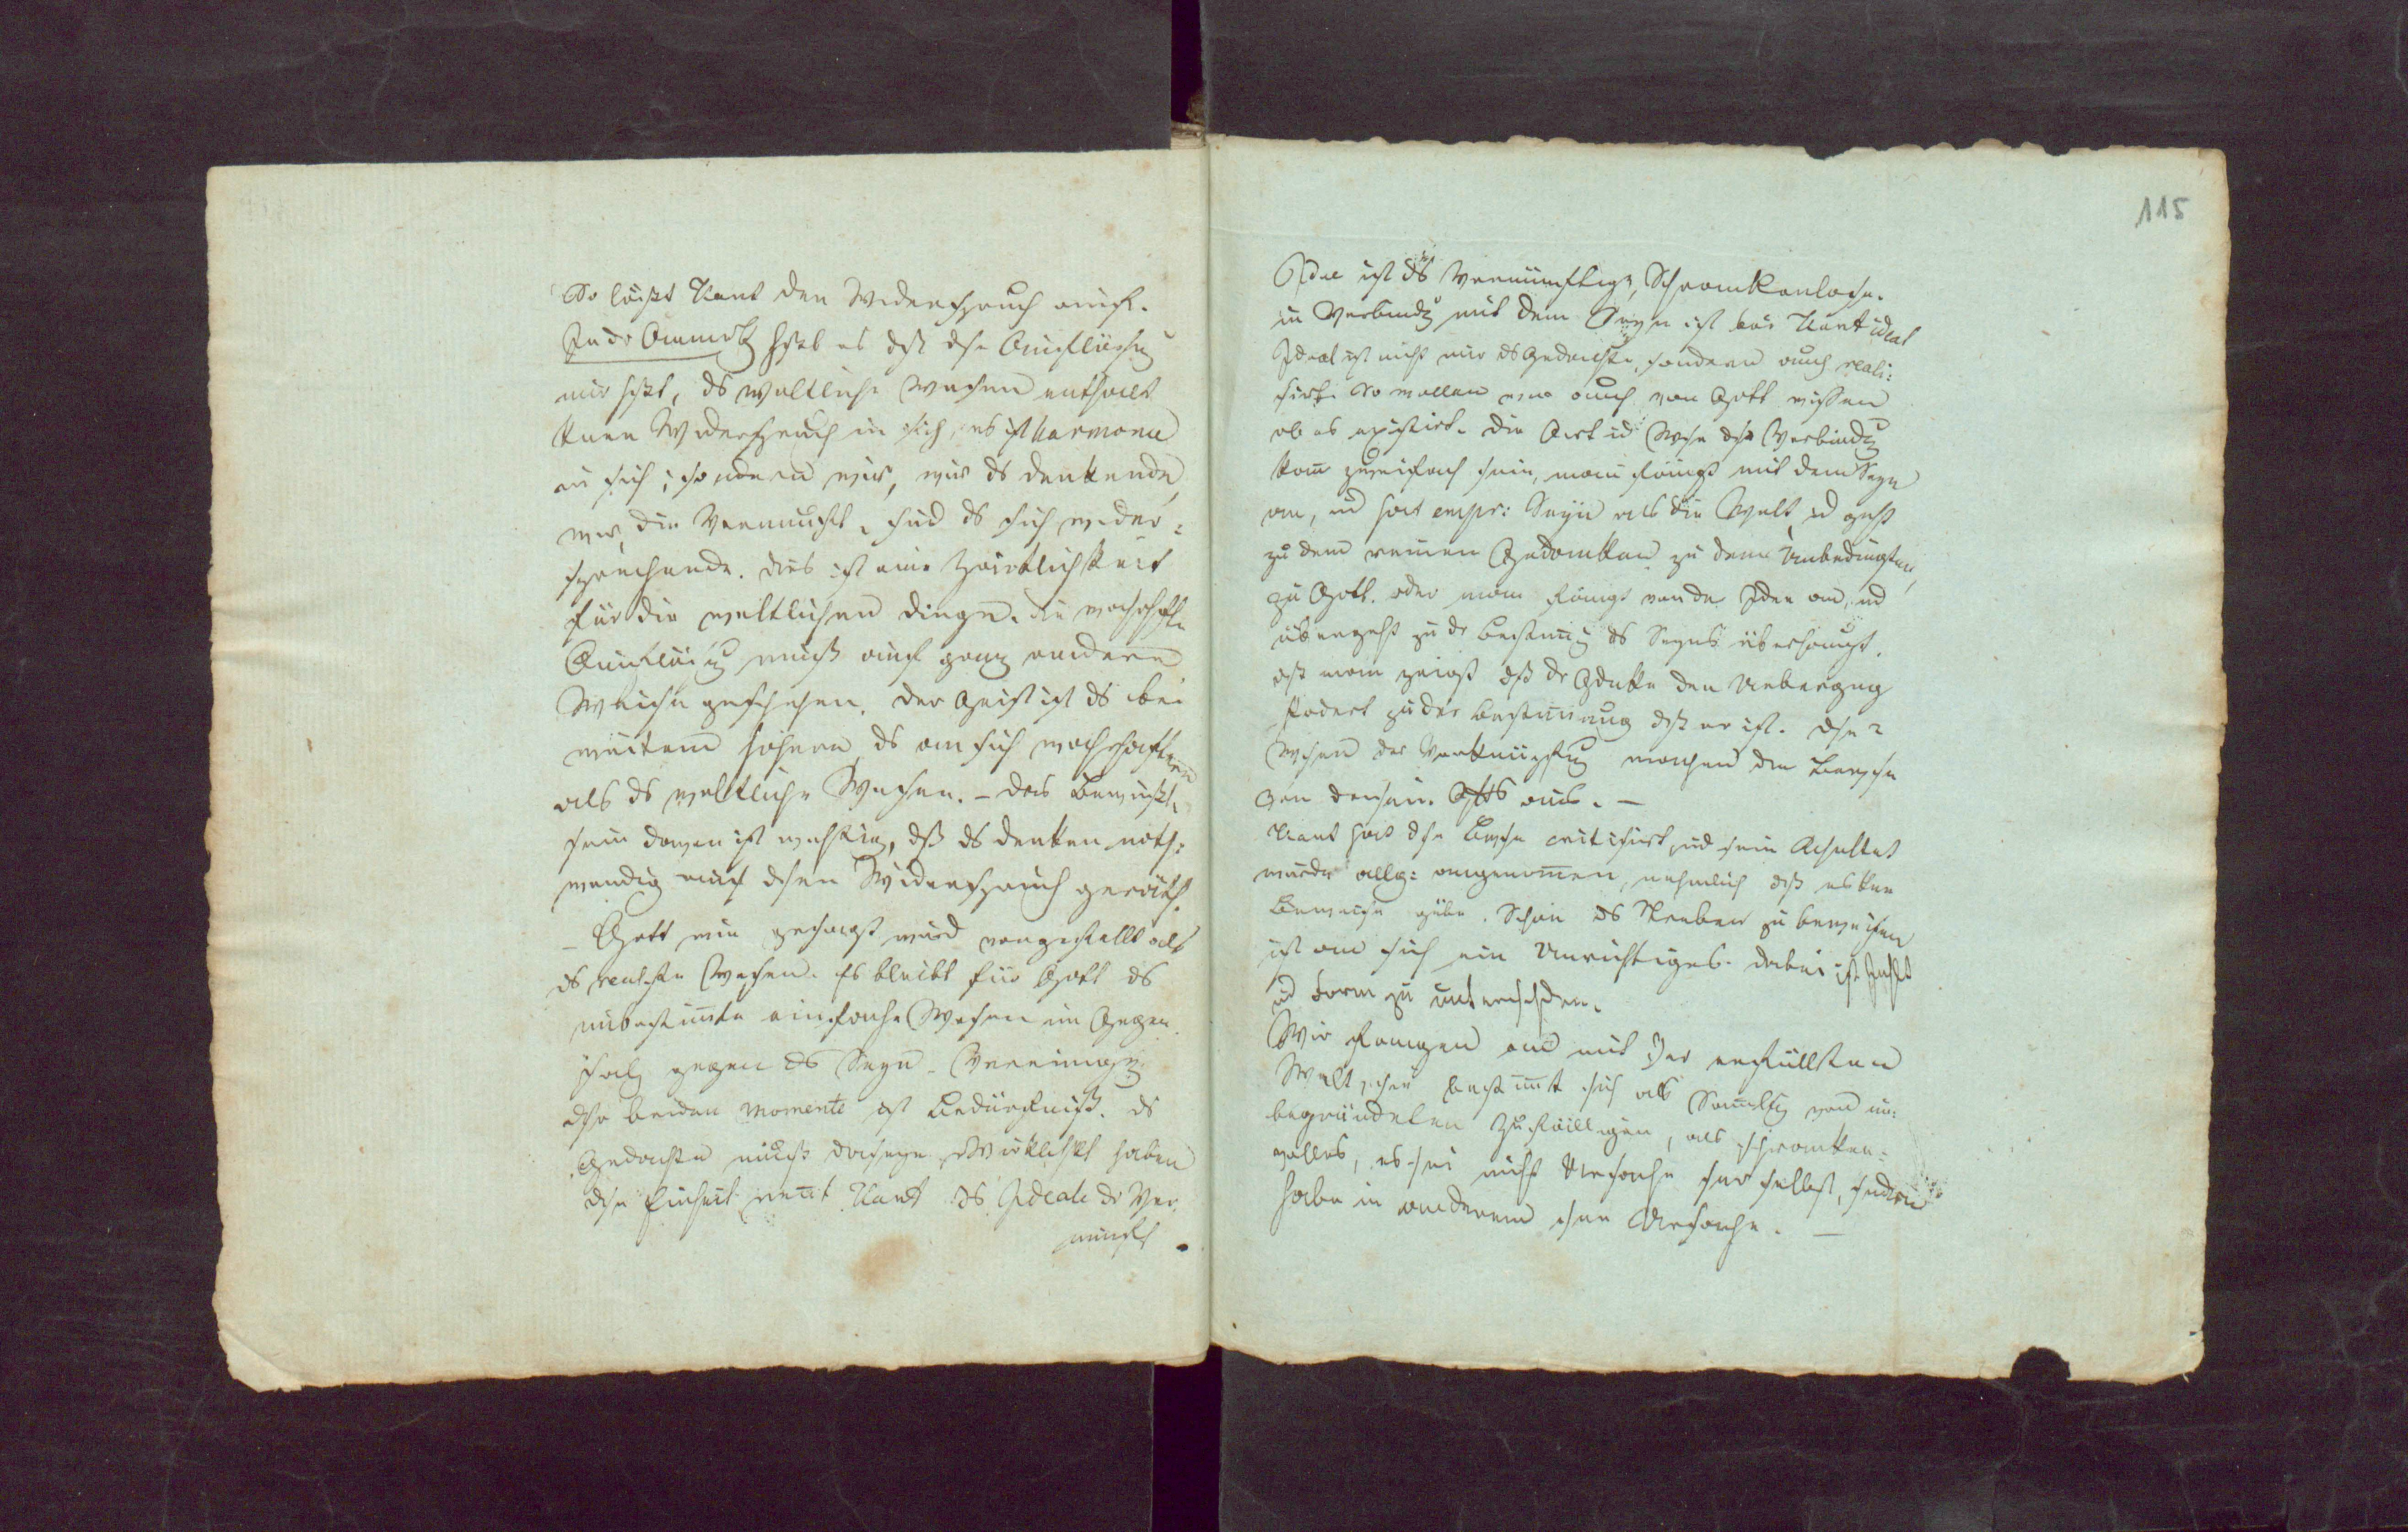 So läßt Kant den Widerspruch auf.
In dr Anmerk heißt es dß dse Auflösung
nur heißt, ds weltliche Wesen enthalte
keinen Widerspruch in sich, es ist Harmonie
in sich; sondern wir, wir ds denkende,
wir, die Vernunft, sind ds sich wider=
sprechende. dies ist eine Zärtlichkeit
für die weltlichen Dinge. die wahrhafte
Auflösung muß auf ganz andere
Weise geschehen. der Geist ist ds bei
weitem höhere, ds an sich wahrhaftere
als ds weltliche Wesen. – das Bewußt=
sein davon ist wichtig, dß ds denken noth=
wendig auf dsen Widerspruch geräth.
– Gott wie gesagt wird vorgestellt als
ds realste Wesen. Es bleibt für Gott ds
unbestimte einfache Wesen im Gegen
satz gegen ds Seyn. Vereinigung
dsr beiden Momente ist Bedürfniß. ds
Gedachte muß daseyn Wirklichkt haben
dse Einheit nent Kant ds Ideale dr Ver
nunft.
115
Idee ist ds Vernünftige, Schrankenlose.
in Verbindg mit dem Seyn ist bei Kant ideal
Ideal ist nicht nur ds Gedachte, sondern auch reali=
sirt. So wollen wir auch von Gott wissen
ob es existirt. die Art ud Wse dsr Verbindg
kann zweifach sein, man fängt mit dem Seyn
an, ud hat empir: Seyn als die Welt, ud geht
zu dem reinen Gedanken zu dem Unbedingten,
zu Gott. oder man fängt von der Idee an, ud
übergeht zu dr Bestimg ds Seyns überhaupt.
dß man zeigt dß dr Gdke den Uebergang
fodert zu der Bestimung dß er ist. dse 2
Wsen der Verknüpfug machen die Beweise
von dasein Gotts aus. –
Kant hat dse Bwse critisirt, ud sein Resultat
wurde allg: angenommen, nehmlich dß es keine
Beweise gäbe. Schon ds Streben zu beweisen
ist an sich ein Unrichtiges. dabei ist Inhlt
ud Form zu unterschden.
Wir fangen an mit der erfüllten
Welt, sie bestimt sich als Samlg von un=
begründeten Zufälligen, als schranken=
volles, es sei nicht Ursache sr selbst, sndern
habe in anderem sne Ursache. –